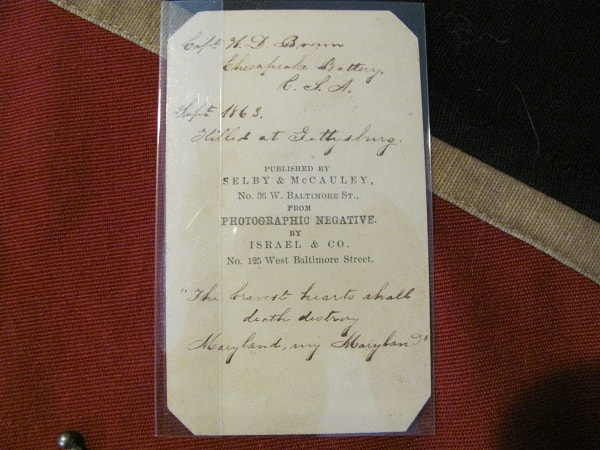 Capt. W. D. Brown
Chesapeake Battery.
C. S. A.
Sept. 1863.
Killed at Gettysburg.
PUBLISHED BY
SELBY & McCAULEY,
No. 36 W. BALTIMORE ST.,
FROM
PHOTOGRAPHIC NEGATIVE.
BY
ISRAEL & CO.
No. 125 West Baltimore Street.
"The bravest hearts shall
death destroy
Maryland, my Maryland"